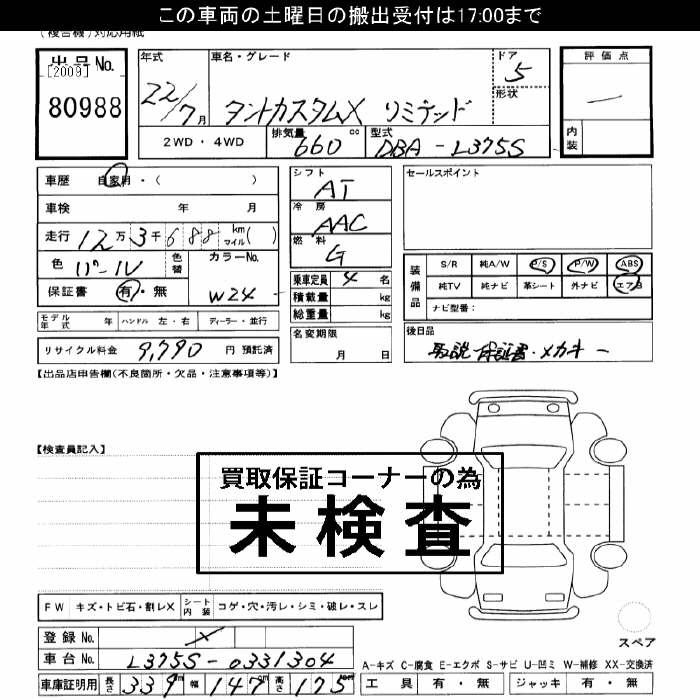 この車両の土曜日の搬出受付は17:00まで
(複合機)対応用紙
出品No.
[2009]
80988
年式
22/7月
車名・グレード
タントカスタムX リミテッド
ドア
5
形状
評価点
—
内装
2WD・4WD
排気量
660 cc
型式
DBA-L375S
車歴 自家用・( )
車検 年 月
走行 12万3千688 km マイル( )
色 パール
色替
カラーNo.
W24
保証書 有・無
モデル年式 年 ハンドル 左・右 ディーラー・並行
リサイクル料金 9,790 円 預託済
シフト
AT
冷房
AAC
燃料
G
乗車定員 4 名
積載量 kg
総重量 kg
名変期限
月 日
セールスポイント
装備品
S/R 純A/W P/S P/W ABS
純TV 純ナビ 革シート 外ナビ エアB
ナビ型番:
後日品
取説 保証書・メカキー
【出品店申告欄(不良箇所・欠品・注意事項等)】
【検査員記入】
買取保証コーナーの為
未検査
FW キズ・トビ石・割レX シート内装 コゲ・穴・汚レ・シミ・破レ・スレ
登録No.
車台No. L375S-0331304
車庫証明用 長さ 339 cm 幅 147 cm 高さ 175 cm
スペア
A-キズ C-腐食 E-エクボ S-サビ U-凹ミ W-補修 XX-交換済
工具 有・無 ジャッキ 有・無